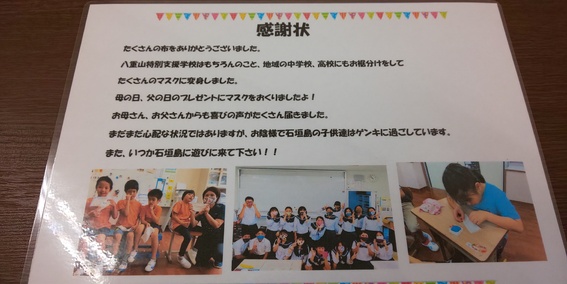 感謝状
たくさんの布をありがとうございました。
八重山特別支援学校はもちろんのこと、地域の中学校、高校にもお裾分けをして
たくさんのマスクに変身しました。
母の日、父の日のプレゼントにマスクをおくりましたよ！
お母さん、お父さんからも喜びの声がたくさん届きました。
まだまだ心配な状況ではありますが、お陰様で石垣島の子供達はゲンキに過ごしています。
また、いつか石垣島に遊びに来て下さい！！